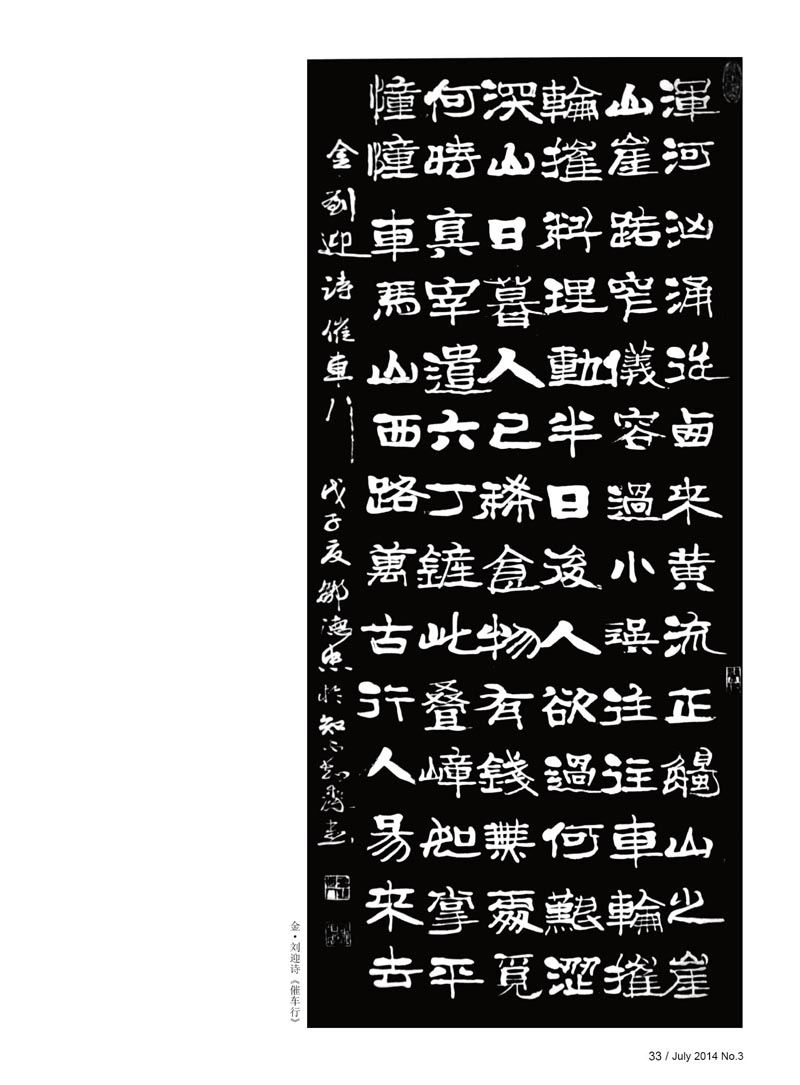 渾河汹涌從鹵來黄流正齧山之崖
山崖路窄儀容過小誤往往車輪摧
輪摧料理動半日後人欲過何艱澀
深山日暮人已稀食物有錢無覓
何時真宰遣六丁鏟此叠嶂如掌平
憧憧車馬山西路萬古行人易來去
金劉迎诗催車行 戊子夏鄒德忠於知不齋書
金·刘迎诗《催车行》
33 / July 2014 No.3